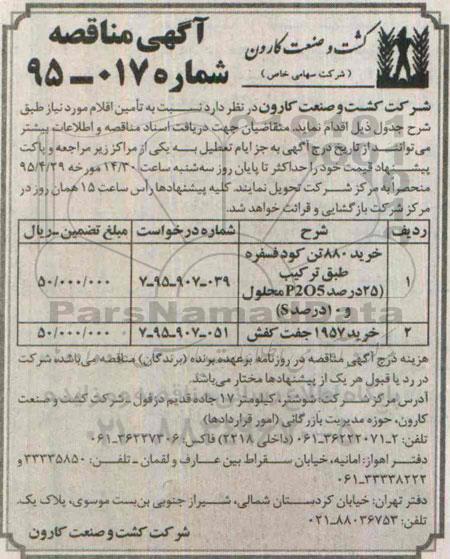 کشت و صنعت کارون
( شرکت سهامی خاص )
آگهی مناقصه
شماره ۰۱۷-۹۵
شرکت کشت و صنعت کارون در نظر دارد نسبت به تأمین اقلام مورد نیاز طبق
شرح جدول ذیل اقدام نماید. متقاضیان جهت دریافت اسناد مناقصه و اطلاعات بیشتر
می‌توانند از تاریخ درج آگهی به جز ایام تعطیل به یکی از مراکز زیر مراجعه و پاکت
پیشنهاد قیمت خود را حداکثر تا پایان روز سه‌شنبه ساعت ۱۴/۳۰ مورخه ۹۵/۴/۲۹
منحصراً به مرکز شرکت تحویل نمایند. کلیه پیشنهادها رأس ساعت ۱۵ همان روز در
مرکز شرکت بازگشایی و قرائت خواهد شد.
ردیف شرح شماره درخواست مبلغ تضمین-ریال
۱ خرید ۸۸۰ تن کود فسفره طبق ترکیب (۲۵درصد P2O5 محلول و ۱۰درصد S) ۷-۹۵-۹۰۷-۰۳۹ ۵۰/۰۰۰/۰۰۰
۲ خرید ۱۹۵۷ جفت کفش ۷-۹۵-۹۰۷-۰۵۱ ۵۰/۰۰۰/۰۰۰
هزینه درج آگهی مناقصه در روزنامه برعهده برنده (برندگان) مناقصه می‌باشد، شرکت
در رد یا قبول هر یک از پیشنهادها مختار می‌باشد.
آدرس مرکز شرکت: شوشتر، کیلومتر ۱۷ جاده قدیم دزفول، شرکت کشت و صنعت
کارون، حوزه مدیریت بازرگانی (امور قراردادها)
تلفن: ۲-۳۶۲۲۲۰۷۱-۰۶۱ (داخلی ۲۲۱۸) فاکس: ۳۶۲۳۷۳۰۶-۰۶۱
دفتر اهواز: امانیه، خیابان سقراط بین عارف و لقمان - تلفن: ۳۳۳۳۵۸۵۰ و
۳۳۳۳۸۲۲۲-۰۶۱
دفتر تهران: خیابان کردستان شمالی، شیراز جنوبی بن‌بست موسوی، پلاک یک.
تلفن: ۸۸۰۳۶۷۵۳-۰۲۱
شرکت کشت و صنعت کارون
ParsNamadData